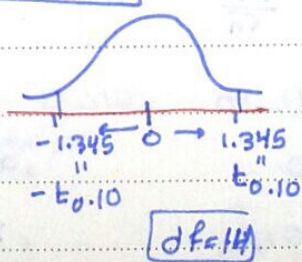 -1.345 ← 0 → 1.345
= =
-t₀.₁₀ t₀.₁₀
df=14